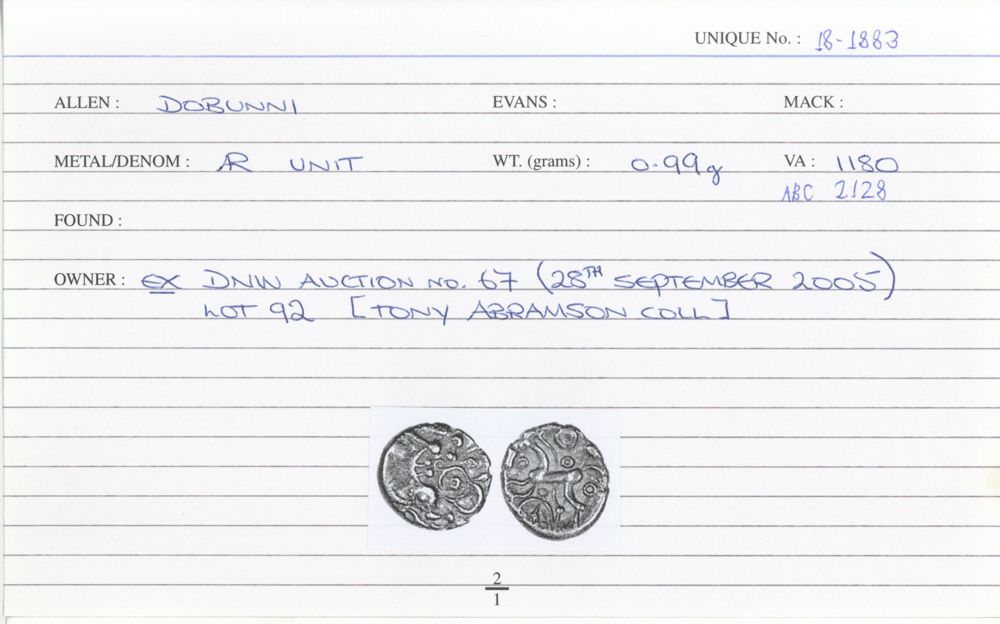 UNIQUE No. : 18-1883
ALLEN : DOBUNNI EVANS : MACK :
METAL/DENOM : AR UNIT WT. (grams) : 0.99g VA : 1180
ABC 2128
FOUND :
OWNER : EX DNW AUCTION NO. 67 (28TH SEPTEMBER 2005)
LOT 92 [TONY ABRAMSON COLL]
2
1